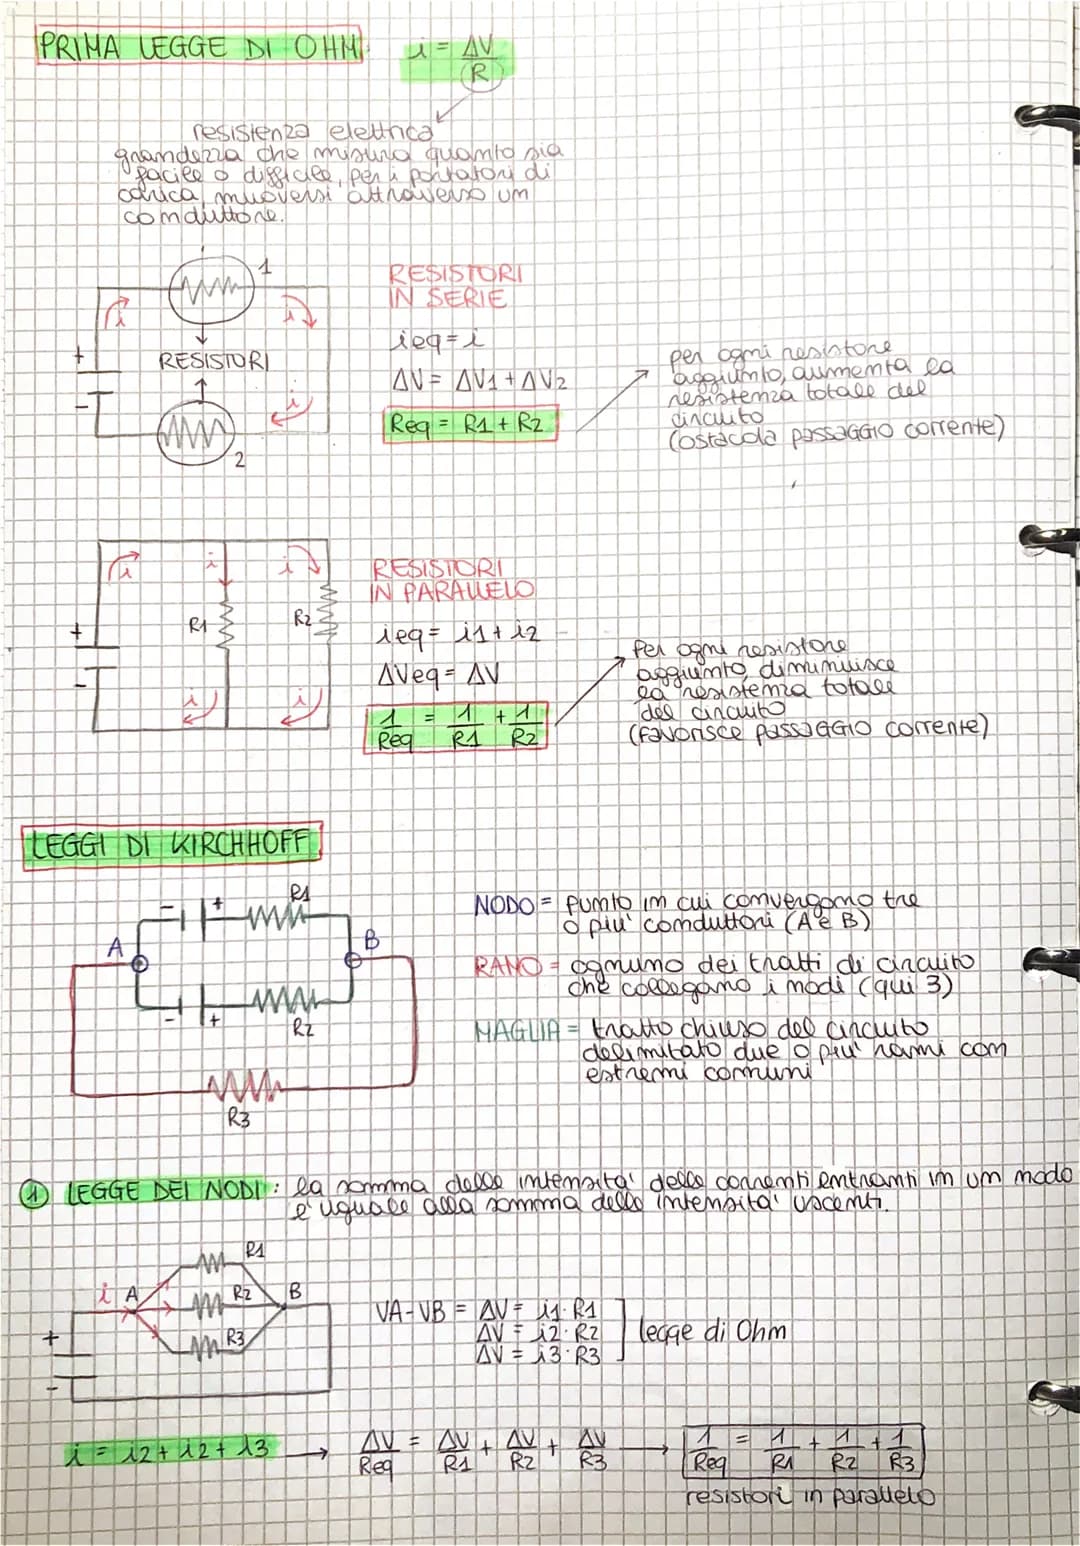 PRIMA LEGGE DI OHM
i = ΔV/R
resistenza elettrica
grandezza che misura quanto sia
facile o difficile, per i portatori di
carica, muoversi attraverso un
conduttore.
1
RESISTORI
IN SERIE
i
i
ieq = i
+
RESISTORI
ΔV = ΔV1 + ΔV2
per ogni resistore
aggiunto, aumenta la
resistenza totale del
circuito
(ostacola passaggio corrente)
-
i
Req = R1 + R2
2
i
i
i
RESISTORI
IN PARALLELO
+
R1
R2
ieq = i1 + i2
ΔVeq = ΔV
Per ogni resistore
aggiunto, diminuisce
la resistenza totale
del circuito
(favorisce passaggio corrente)
-
i
i
1/Req = 1/R1 + 1/R2
LEGGI DI KIRCHHOFF
- + R1
A
B
- + R2
R3
NODO = punto in cui convergono tre
o piu' conduttori (A e B)
RAMO = ognuno dei tratti di circuito
che collegano i nodi (qui 3)
MAGLIA = tratto chiuso del circuito
delimitato due o piu' rami con
estremi comuni
1 LEGGE DEI NODI: la somma delle intensita' delle correnti entranti in un nodo
e' uguale alla somma delle intensita' uscenti.
R1
i A
R2
B
R3
+
-
VA-VB = ΔV = i1·R1
ΔV = i2·R2
ΔV = i3·R3
legge di Ohm
i = i2 + i2 + i3 → ΔV/Req = ΔV/R1 + ΔV/R2 + ΔV/R3 → 1/Req = 1/R1 + 1/R2 + 1/R3
resistori in parallelo